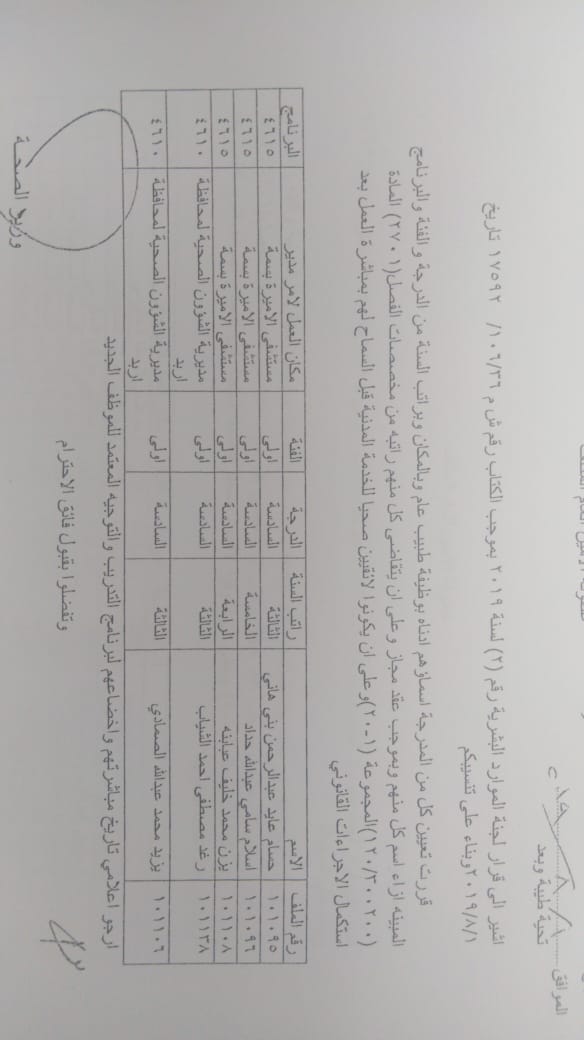 الموافق
تحية طيبة وبعد
اشير الى قرار لجنة الموارد البشرية رقم (٢) لسنة ٢٠١٩ بموجب الكتاب رقم ش م ١٠٦/٣٦/ ١٧٥٩٢ تاريخ
٢٠١٩/٨/١ وبناء على تنسيبكم
قررت تعيين كل من المدرجة اسماؤهم ادناه بوظيفة طبيب عام وبالمكان وبراتب السنة من الدرجة والفئة والبرنامج
المبينه ازاء اسم كل منهم وبموجب عقد مجاز وعلى ان يتقاضى كل منهم راتبه من مخصصات الفصل (٢٧٠١) المادة
(١٢٠/٣٠٠٢٠٠) المجموعة (٢٠-١) وعلى ان يكونوا لائقين صحيا للخدمة المدنية قبل السماح لهم بمباشرة العمل بعد
استكمال الاجراءات القانوني
رقم الملف الاسم راتب السنة الدرجة الفئة مكان العمل لامر مدير البرنامج
١٠١٠٩٥ حسام عايد عبدالرحمن بني هاني الثالثة السادسة اولى مستشفى الاميرة بسمة ٤٦١٥
١٠١٠٩٦ اسلام سامي عبدالله حداد الخامسة السادسة اولى مستشفى الاميرة بسمة ٤٦١٥
١٠١١٠٨ يزن محمد خليف عبابنه الرابعة السادسة اولى مستشفى الاميرة بسمة ٤٦١٥
١٠١١٣٨ رغد مصطفى احمد الشياب الثالثة السادسة اولى مديرية الشؤون الصحية لمحافظة ٤٦١٠
اربد
١٠١١٠٦ يزيد محمد عبدالله الصمادي الثالثة السادسة اولى مديرية الشؤون الصحية لمحافظة ٤٦١٠
اربد
ارجو اعلامي تاريخ مباشرتهم واخضاعهم لبرنامج التدريب والتوجيه المعتمد للموظف الجديد
وتفضلوا بقبول فائق الاحترام
وزير الصحة